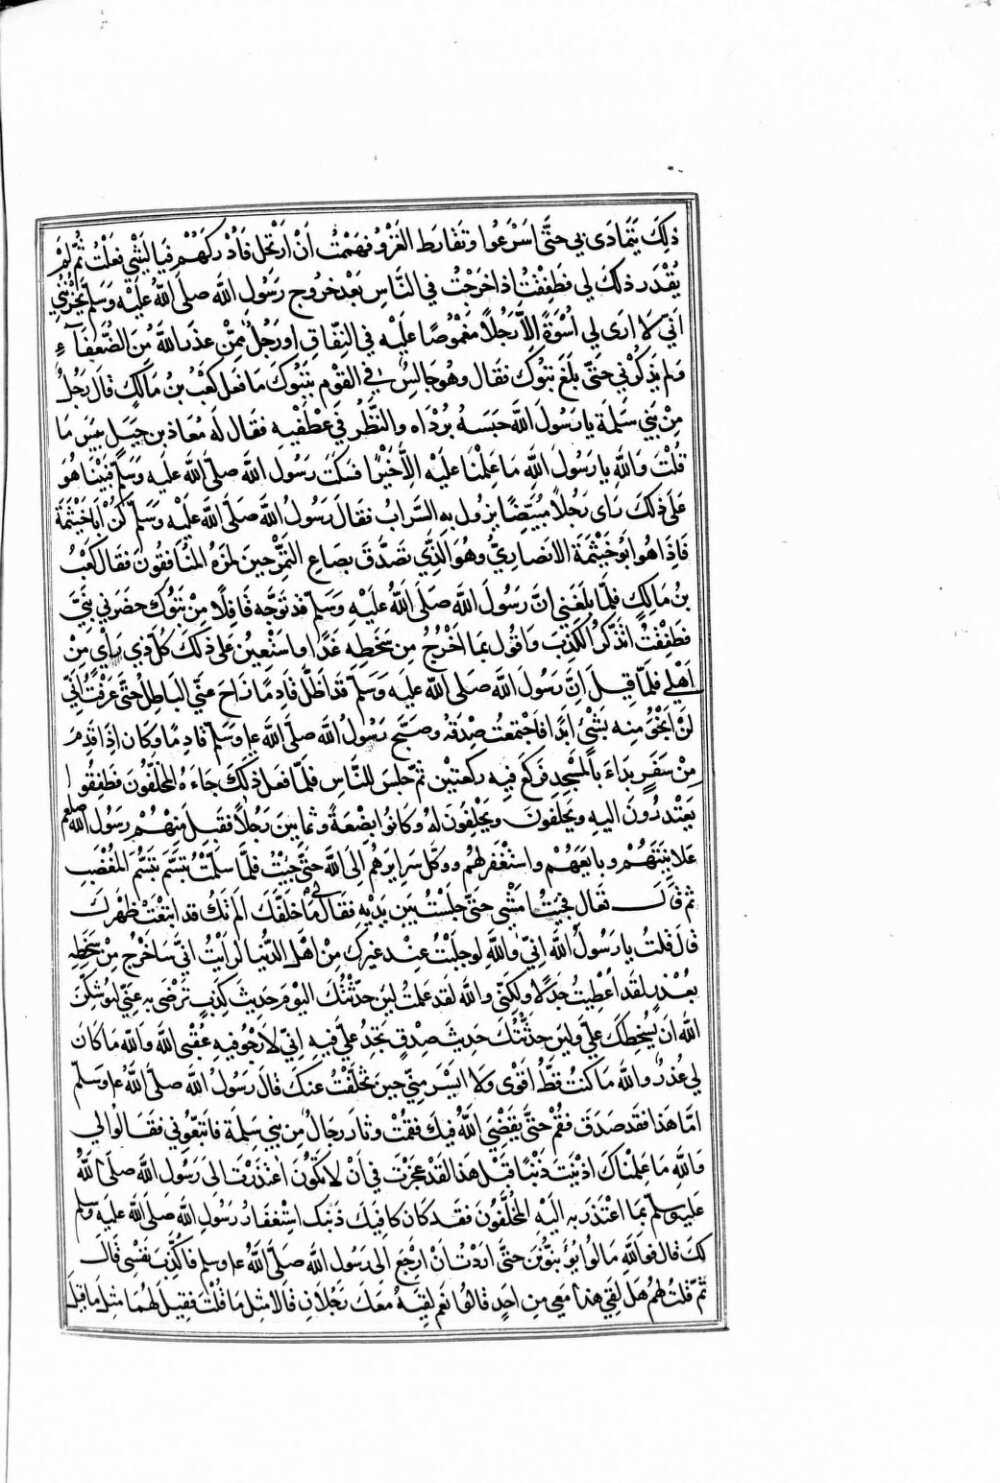 ذلِكَ يَتَمَادَى بِي حَتَّى اَسْرَعُوا وَتَفَارَطَ الغَزْوُ فَهَمَمْتُ اَنْ اَرْتَحِلَ فَاُدْرِكَهُمْ فَيَالَيْتَنِي فَعَلْتُ ثُمَّ لَمْ
يُقْدَر ذلكَ لِي فَطَفِقْتُ اِذَا خَرَجْتُ فِي النَّاسِ بَعْدَ خروجِ رَسُولِ اللهِ صلى اللهُ عَلَيْهِ وَسَلَّم يَحْزُنُنِي
اَنِّي لا اَرَى لِي اُسْوَةً اِلاَّ رَجُلاً مَغْمُوصًا عَلَيْهِ فِي النِّفَاقِ او رَجُلٌ مِمَّنْ عَذَرَ اللهُ مِنَ الضُّعَفَآءِ
وَلم يَذكُرْنِي حَتَّى بَلَغَ تبُوكَ فَقَال وَهُوَ جَالِسٌ فِي القَوْمِ بِتَبُوكَ مَا فَعَلَ كَعْبُ بنُ مَالِكٍ قَالَ رَجُلٌ
مِنْ بَنِي سَلِمَةَ يَا رَسُولَ اللهِ حَبَسَهُ بُرْدَاه والنَّظَرُ فِي عِطْفَيْهِ فَقَال لَه مُعَاذ بن جَبَل بِيسَ مَا
قُلْتَ وَاللهِ يَا رَسُولَ اللهِ مَا عَلِمْنَا عَلَيْهِ اِلاَّ خَيْرًا فَسَكَتَ رَسُولُ اللهِ صلى اللهُ عَلَيهِ وَسَلَّم فَبَيْنَا هُوَ
عَلَى ذلكَ رَاى رَجُلاً مُبَيِّضًا يزُول بهِ السَّرَابُ فقَالَ رَسُولُ اللهِ صَلَّى اللهُ عَلَيْهِ وَسَلَّم كُنْ اَبَا خَيْثَمَةَ
فَاِذَا هُوَ اَبُو خَيْثَمَةَ الانصَارِيُّ وَهُوَ الَّذِي تَصَدَّقَ بِصَاعِ التَّمْرِ حِينَ لمَزَهُ المُنَافِقُونَ فقَالَ كَعْبُ
بنُ مَالِكٍ فَلَمَّا بَلَغَنِي اَنَّ رَسُولَ اللهِ صَلَّى اللهُ عَلَيْهِ وَسَلَّم قَد تَوَجَّهَ قَافِلًا مِنْ تَبُوك حَضَرَنِي بَثِّي
فَطَفِقْتُ اَتَذَكَّرُ الكَذِبَ وَاَقُولُ بِمَا اَخْرُجُ مِن سَخَطِهِ غَدًا واستَعِينُ عَلَى ذلكَ كُلَّ ذِي رَاْيٍ مِنْ
اَهْلِي فَلَمَّا قِيلَ اِنَّ رَسُولَ اللهِ صَلى اللهُ عليهِ وَسَلَّم قَد اَظَلَّ قَادِمًا زَاحَ عَنِّي البَاطِلُ حَتَّى عَرَفْتُ اَنِّي
لَنْ اَنْجُوَ مِنهِ بِشَيْءٍ اَبَدًا فَاَجْمَعْتُ صِدْقَهُ وصَبَّحَ رَسُولُ اللهِ صَلَّى اللهُ ع‍ل وسَلَّم قَادِمًا وَكَان اِذَا قَدِمَ
مِنْ سَفَرٍ بَدَاَ بالمَسْجِدِ فَرَكَعَ فِيهِ ركعتَيْنِ ثُمَّ جلسَ للنَّاسِ فَلَمَّا فعَلَ ذلكَ جَاءَهُ المُخَلَّفُونَ فَطَفِقُوا
يَعْتَذِرُونَ اليهِ وَيَحلِفُونَ وَيَحْلِفُونَ لهُ وَكَانُوا بِضْعَةً وثَمَانِينَ رَجُلاً فَقَبِلَ مِنْهُمْ رَسُولُ اللهِ صلعم
عَلانِيَتَهُمْ وبَايَعَهُمْ واسْتَغْفَرلهُمْ ووَكَّلَ سَرَايرَهُمْ اِلَى اللهِ حَتَّى جِيْتُ فَلَمَّا سَلَّمْتُ تَبَسَّمَ تَبَسُّمَ المُغْضَبِ
ثم قَالَ تَعَالَ فَجِيْتُ اَمْشِي حَتَّى جَلَسْتُ بَيْنَ يَدَيْهِ فَقَالَ لِي مَا خَلَّفَكَ اَلمْ تَكُ قَدِ ابْتَعْتَ ظَهْرَكَ
قَالَ قُلتُ يا رَسُولَ اللهِ اِنِّي وَاللهِ لَو جَلَسْتُ عِنْدَ غيرِكَ مِنْ اَهْلِ الدُّنْيَا لَرَايْتُ اَنِّي سَاَخْرُجُ مِنْ سَخَطِهِ
بعُذْرٍ لقَد اُعْطِيتُ جدَلًا ولكِنِّي وَاللهِ لقَد عَلِمْتُ لَيِنْ حَدَّثْتُكَ اليَوْمَ حَدِيثَ كَذِبٍ تَرْضَى بِهِ عَنِّي لَيُوشِكَنَّ
اللهُ اَن يُسْخِطَكَ عَلَيَّ وَلَيِن حَدَّثْتُكَ حَدِيثَ صِدْقٍ تَجِدُ عَلَيَّ فِيهِ اِنِّي لاَرْجُو فِيهِ عُقْبَى اللهِ وَاللهِ مَا كَانَ
لِي عُذْرٌ وَاللهِ مَا كُنْتُ قَطُّ اَقْوَى وَلَا اَيْسَرَ مِنِّي حِينَ تَخَلَّفْتُ عَنكَ قَالَ رَسُولُ اللهِ صلى اللهُ ع‍ل وسَلَّم
اَمَّا هَذَا فَقَد صَدَقَ فقُمْ حَتَّى يَقْضِيَ اللهُ فِيكَ فَقُمْتُ وثَارَ رِجَالٌ مِن بَنِي سَلِمَةَ فَاتَّبَعُونِي فَقَالُوا لِي
وَاللهِ مَا عَلِمْنَاكَ اَذْنَبْتَ ذَنْبًا قَبْلَ هَذَا لَقَدْ عَجَزْتَ فِي اَنْ لا تَكُونَ اعْتَذَرْتَ اِلَى رَسُولِ اللهِ صَلَى اللهُ
عَليهِ وسلَّم بِمَا اعْتَذَرَ بهِ اِلَيْهِ المُخَلَّفُونَ فقَد كَانَ كَافِيكَ ذَنبَكَ اسْتِغْفَارُ رَسُولِ اللهِ صَلَى اللهُ عَلَيهِ وسَلم
لكَ قَالَ فَوَاللهِ مَا زَالُوا يُؤَنِّبُونَنِي حَتَّى اَرَدْتُ اَنْ اَرْجِعَ الى رَسُول اللهِ صَلَّى اللهُ ع‍ل وسلم فاُكَذِّبَ نَفْسِي قَالَ
ثُمَّ قُلتُ لهُمْ هَلْ لَقِيَ هذا مَعِي مِن اَحَدٍ قَالُوا نَعَم لَقِيَهُ مَعَكَ رَجُلَانِ قَالا مِثْلَ مَا قُلْتَ فَقِيلَ لَهُمَا مِثْلَ مَا قِيلَ